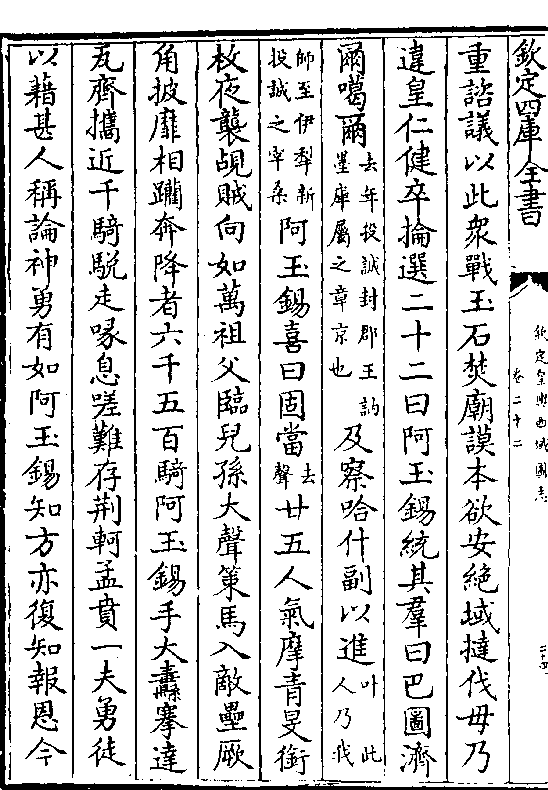 欽定四庫全書
欽定皇輿西域圖志
卷二十二
重諮議以此衆戰玉石焚廟謨本欲安絕域撻伐毋乃
違皇仁健卒掄選二十二曰阿玉錫統其羣曰巴圖濟
爾噶爾去年投誠封郡王訥墨庫屬之章京也及察哈什副以進叶此人乃我
師至伊犁新投誠之宰桑阿玉錫喜曰固當去聲廿五人氣摩青旻銜
枚夜襲覘賊向如萬祖父臨兒孫大聲策馬入敵壘厥
角披靡相躪奔降者六千五百騎阿玉錫手大纛搴達
瓦齊攜近千騎駾走喙息嗟難存荊軻孟賁一夫勇徒
以藉甚人稱論神勇有如阿玉錫知方亦復知報恩今